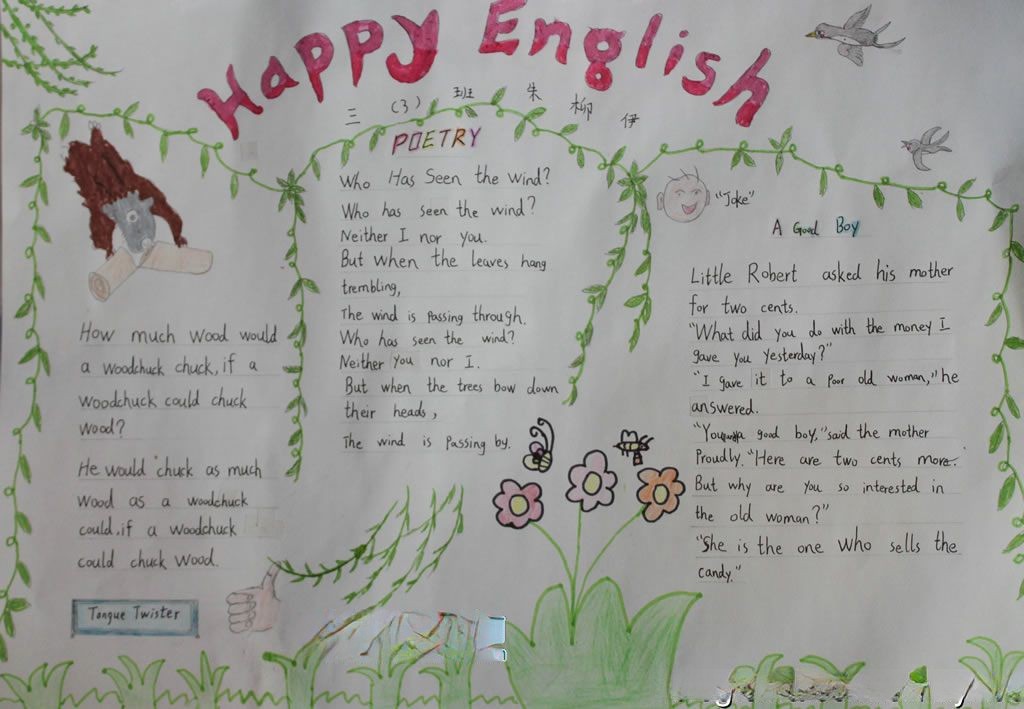 Happy English
三 (3) 班 朱 柳 伊
How much wood would
a woodchuck chuck, if a
woodchuck could chuck
wood?
He would chuck as much
wood as a woodchuck
could.if a woodchuck
could chuck wood.
Tongue Twister
POETRY
Who Has Seen the wind?
Who has seen the wind?
Neither I nor you.
But when the leaves hang
trembling,
The wind is passing through.
Who has seen the wind?
Neither you nor I.
But when the trees bow down
their heads,
The wind is passing by.
"Joke"
A Good Boy
Little Robert asked his mother
for two cents.
"What did you do with the money I
gave you yesterday?"
"I gave it to a poor old woman," he
answered.
"You a good boy," said the mother
Proudly. "Here are two cents more.
But why are you so interested in
the old woman?"
"She is the one who sells the
candy."